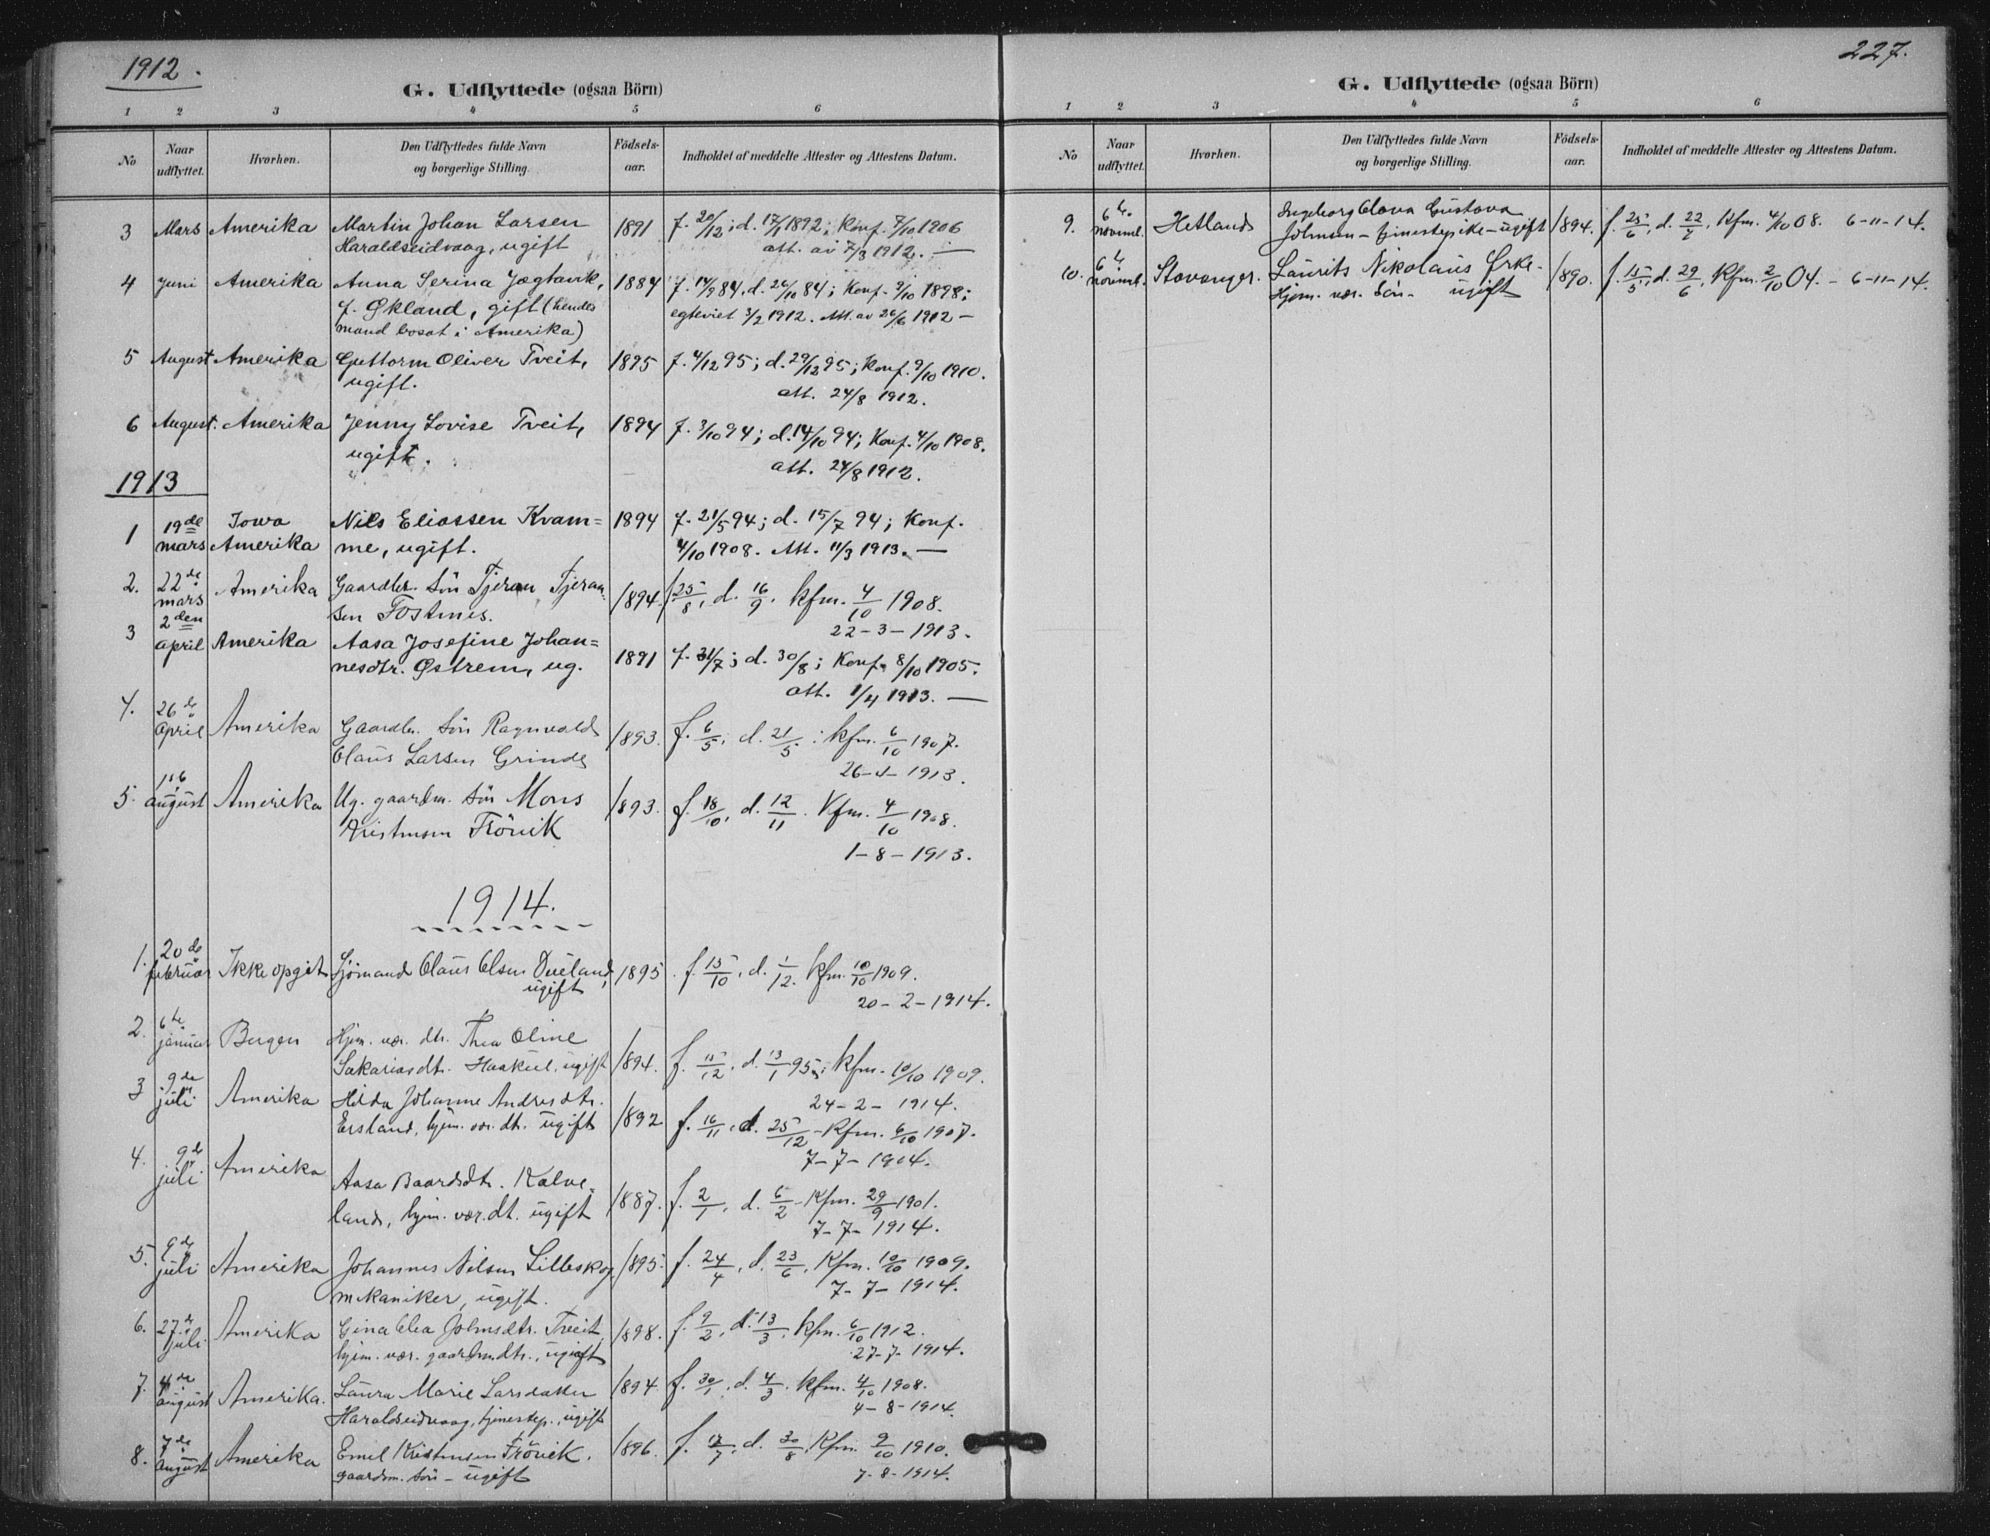 1912.
G. Udflyttede (ogsaa Börn)
1 2 3 4 5 6
No
Naar udflyttet.
Hvorhen.
Den Udflyttedes fulde Navn og borgerlige Stilling.
Födsels-aar.
Indholdet af meddelte Attester og Attestens Datum.
3 Mars Amerika Martin Johan Larsen 1891 f. 20/12; d. 17/1 1892; Konf. 7/10 1906
Haraldseidvaag, ugift att. av 7/3 1912. —
4 Juni Amerika Anna Serina Jægtavik, 1884 f. 14/9 84, d. 26/10 84; Konf. 9/10 1898;
f. Økland, gift (hendes egteviet 3/2 1912. Att. av 26/6 1912 —
mand bosat i Amerika)
5 August Amerika Guttorm Oliver Tveit, 1895 f. 4/12 95; d. 29/12 95; Konf. 9/10 1910.
ugift. att. 24/8 1912.
6 August. Amerika Jenny Lovise Tveit, 1894 f. 3/10 94; d. 14/10 94; Konf. 4/10 1908.
ugift. att. 24/8 1912.
1913
1 19de mars Iowa Amerika Nils Eliassen Kvam= 1894 f. 21/5 94; d. 15/7 94; Konf.
me, ugift. 4/10 1908. Att. 11/3 1913. —
2. 22de mars Amerika Gaardbr. sön Tjeran Tjeran- 1894. f. 25/8, d. 16/9. kfm. 4/10 1908.
sen Fostnes. 22-3-1913.
3 2den april Amerika Aasa Josefine Johan= 1891 f. 31/7; d. 30/8; Konf. 8/10 1905.
nesdtr. Østrem, ug. att. 1/4 1913. —
4. 26de april Amerika Gaardbr. sön Ragnvald 1893. f. 6/5, d. 21/5; kfm. 6/10 1907.
Olaus Larsen Grinde 26-4-1913.
5. august Amerika Ug. gaardm. sön Mons 1893. f. 18/10, d. 12/11. Kfm. 4/10 1908.
Kristensen Frövik 1-8-1913.
1914.
1. 20de februar Ikke opgit Sjömand Olaus Olsen Dueland, 1895. f. 15/10, d. 1/12. kfm. 10/10 1909.
ugift 20-2-1914.
2. 6te januar Bergen Hjem. vær. dtr. Thea Oline
Sakariasdtr. ugift 1894. f. 15/12, d. 13/1 95; kfm. 10/10 1909.
24-2-1914.
3 9de juli Amerika Hilda Johanne Andreasdtr.
Ersland, hjem. vær. dtr. ugift 1892 f. 16/11, d. 25/12 - Kfm. 6/10 1907.
7-7-1914.
4. 9de juli Amerika Aasa Baardsdtr. Kalve-
land, hjem. vær. dt. ugift 1887. f. 2/1, d. 6/2 - Kfm. 29/9 1901.
7-7-1914.
5. 9de juli Amerika Johannes Nilsen Lilleskog, 1895. f. 24/4, d. 23/6, Kfm. 10/10 1909.
mekaniker, ugift. 7-7-1914.
6. 27de juli Amerika Gina Elea Johnsdtr. Tveit 1898. f. 9/2, d. 13/3, kfm. 6/10 1912.
hjem. vær. gaardmdtr., ugift 27-7-1914.
7. 4de august Amerika. Laura Marie Larsdatter 1894 f. 30/1, d. 4/3. kfm. 4/10 1908.
Haraldseidvaag, tjenestep., ugift 4-8-1914.
8. 7de august Amerika Emil Kristensen Frövik. 1896. f. 12/7, d. 30/8. Kfm. 9/10 1910.
gaardm. sön - ugift 7-8-1914.
227.
G. Udflyttede (ogsaa Börn)
1 2 3 4 5 6
No
Naar udflyttet.
Hvorhen.
Den Udflyttedes fulde Navn og borgerlige Stilling.
Födsels-aar.
Indholdet af meddelte Attester og Attestens Datum.
9. 6te novemb. Hetland Ingeborg Olava Gustava
Johnsen - tjenestepike - ugift 1894. f. 25/6, d. 22/7, Kfm. 4/10 08. 6-11-14.
10. 6te novemb. Stavanger. Laurits Nikolaus Ørke- 1890. f. 15/5, d. 29/6, Kfm. 2/10 04. - 6-11-14.
Hjem. vær. sön - ugift